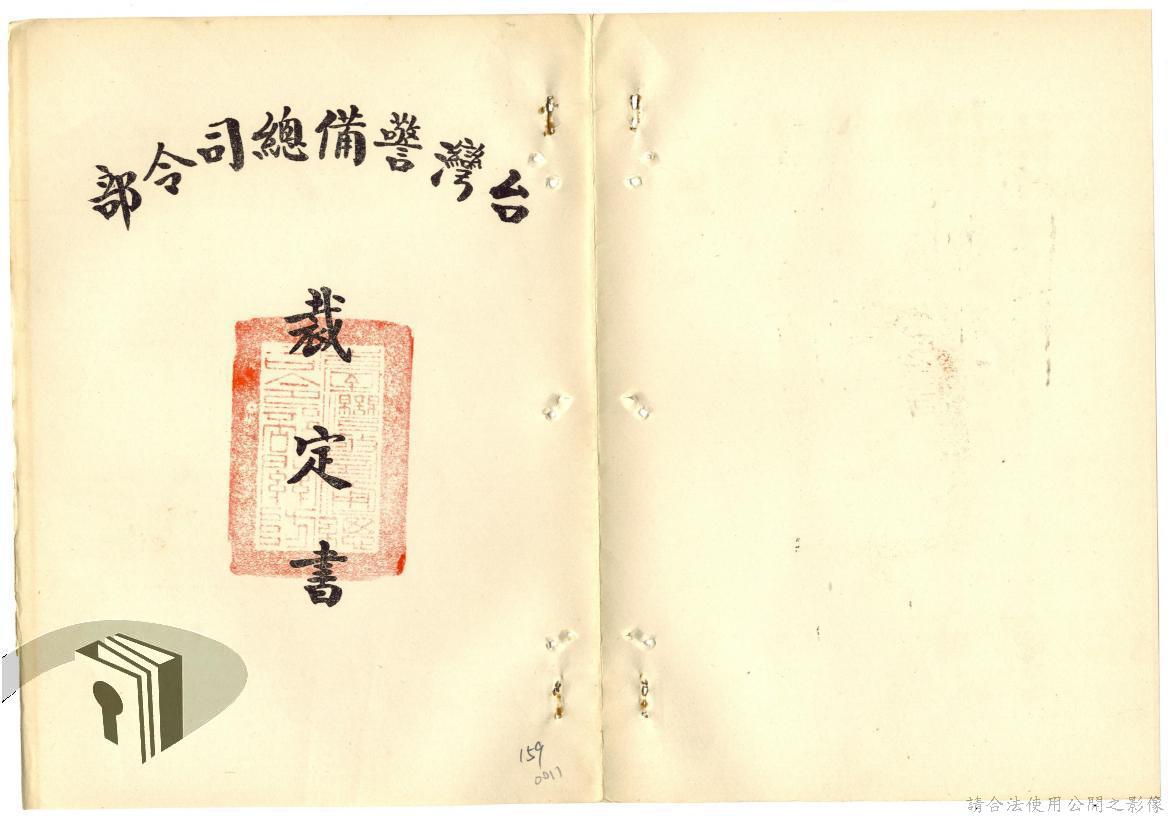 台灣警備總司令部
裁定書
159
0011
請合法使用公開之影像